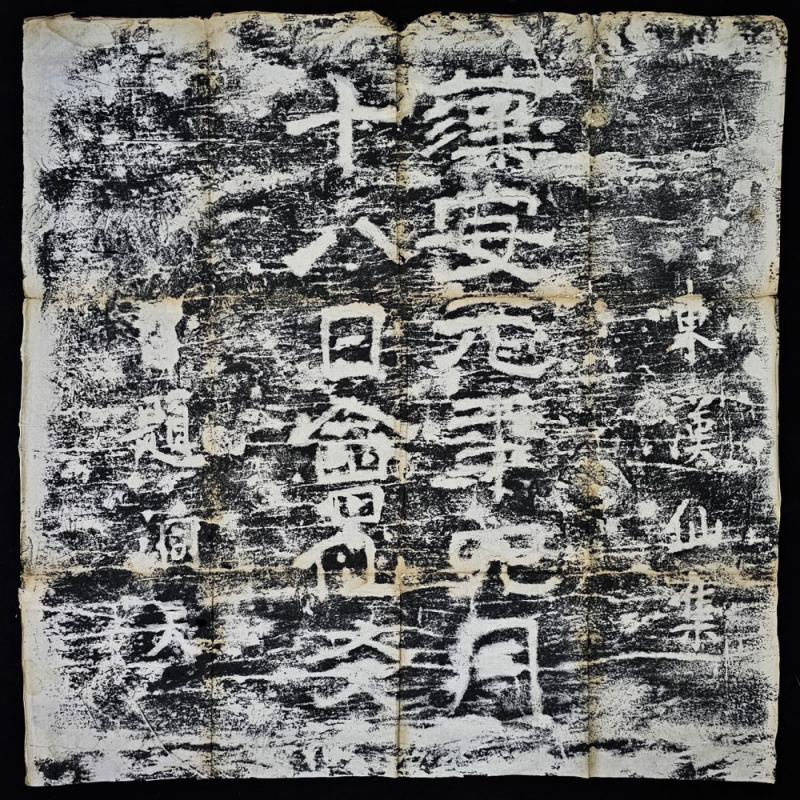 東漢仙集
漢安元年四月
十八日會仙友
題洞天